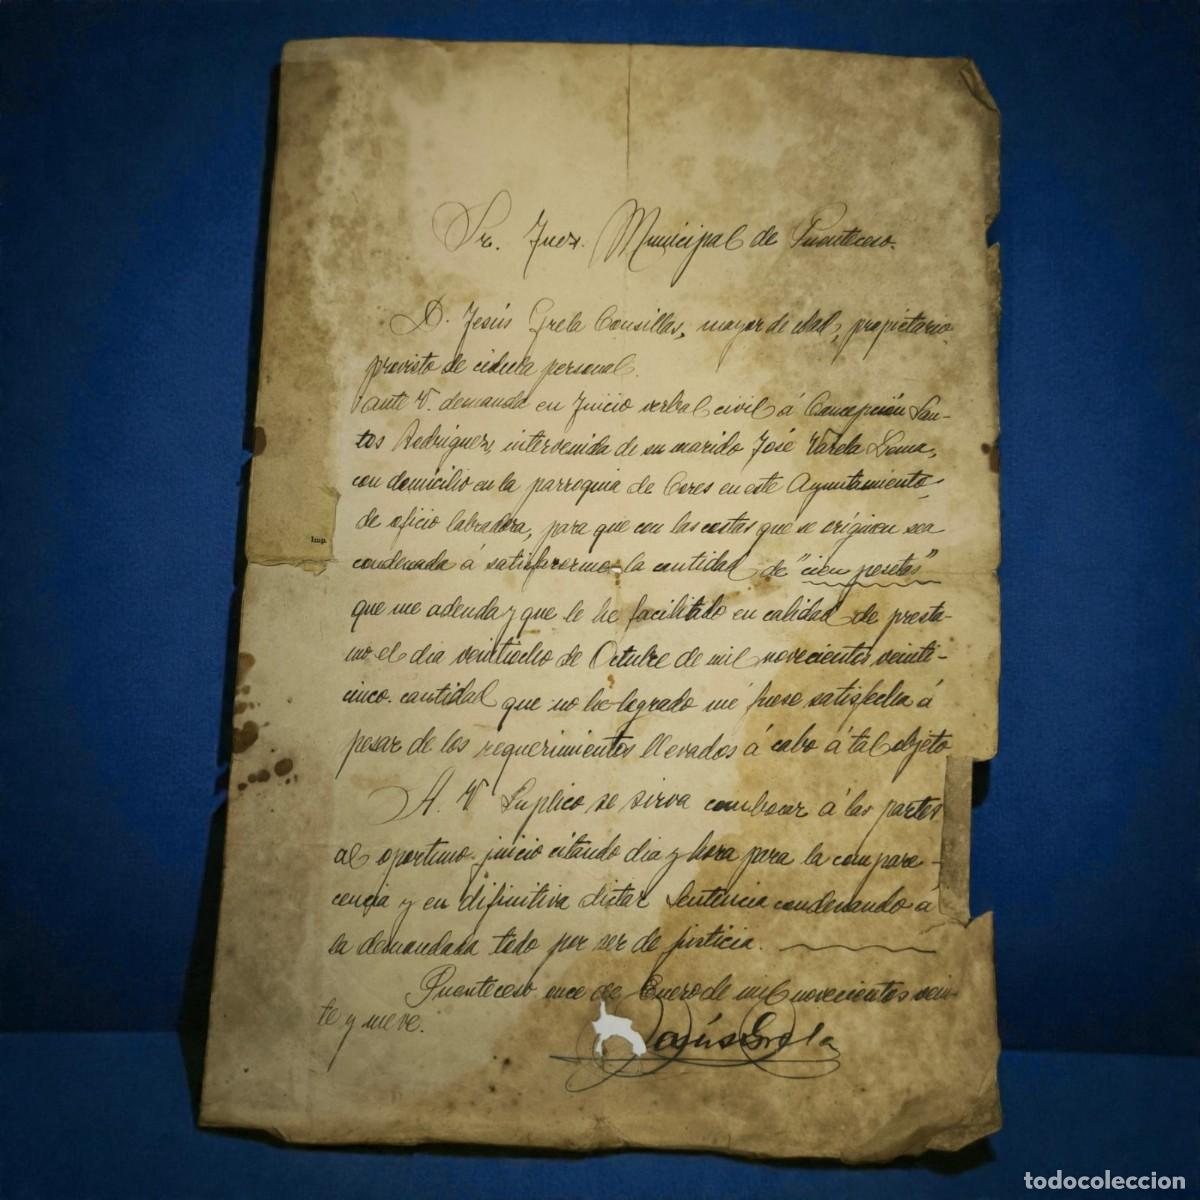 Sr. Juez Municipal de Puenteceso.
D. Jesús Grela Cousillas, mayor de edad, propietario
provisto de cidula personal.
ante V. demanda en Juicio verbal civil á Concepción San-
tos Rodriguez, intervenida de su marido José Varela Lema,
con domicilio en la parroquia de Cores en este Ayuntamiento
de oficio labradora, para que con las costas que se originen sea
condenada á satisfacerme la cantidad de "cien pesetas"
que me adenda y que le he facilitado en calidad de presta-
mo el dia veintiocho de Octubre de mil novecientos veinti-
cinco. cantidad que no he logrado me fuese satisfecha á
pesar de los requerimientos llevados á cabo á tal objeto
A. V. Suplico se sirva combocar á las partes
al oportuno juicio citando dia y hora para la compare-
cencia y en difinitiva dictar Sentencia condenando á
la demandada todo por ser de justicia.
Puenteceso once de Enero de mil novecientos vein-
te y nueve.
Jesús Grela
Imp.
todocoleccion